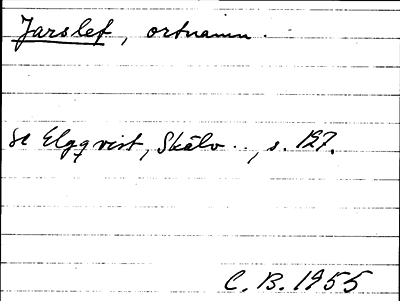 Jarslef, ortnamn.
se Elgqvist, Skälv .., s. 127.
C. B. 1955